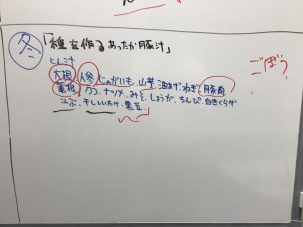 冬
「種を作るあったか豚汁」
とん汁
大根、人参、じゃがいも、山芋、油あげ、ねぎ、豚肉
クコ、ナツメ、みそ、しょうが、ちんぴ、白きくらげ
こんぶ、干ししいたけ、黒豆
ごぼう